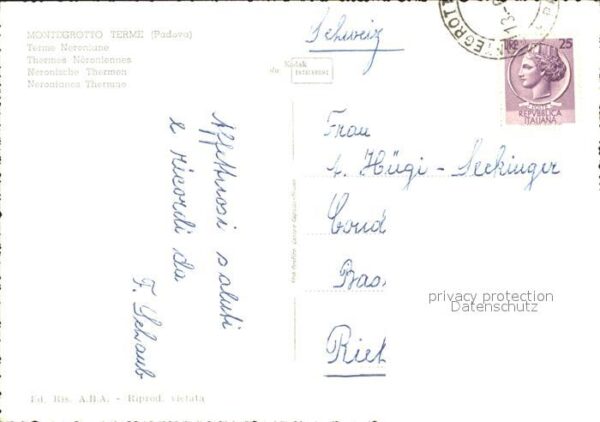 MONTEGROTTO TERME (Padova)
Terme Neroniane
Thermes Néroniennes
Neronische Thermen
Neronianes Thermae
Schweiz
da Kodak
EKTACHROME
LIRE 25
POSTE
REPVBBLICA
ITALIANA
Affettuosi saluti
e ricordi da
F. Schaub
Frau
A. Hügi - Seckinger
Cond
Bas.
Riet
privacy protection
Datenschutz
Ed. Ris. A.B.A. - Riprod. vietata